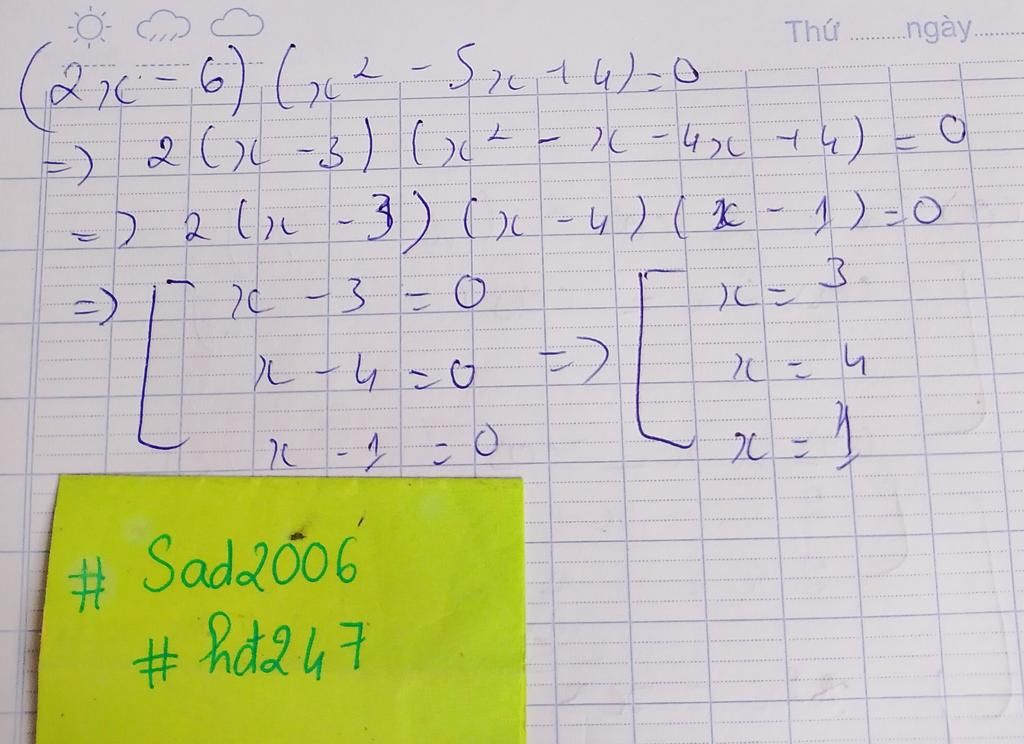 Thứ ........ngày........
(2x - 6) (x² - 5x + 4) = 0
=> 2 (x - 3) (x² - x - 4x + 4) = 0
=> 2 (x - 3) (x - 4) (x - 1) = 0
=> [ x - 3 = 0 [ x = 3
x - 4 = 0 => x = 4
x - 1 = 0 x = 1
# Sad2006
# hđ247